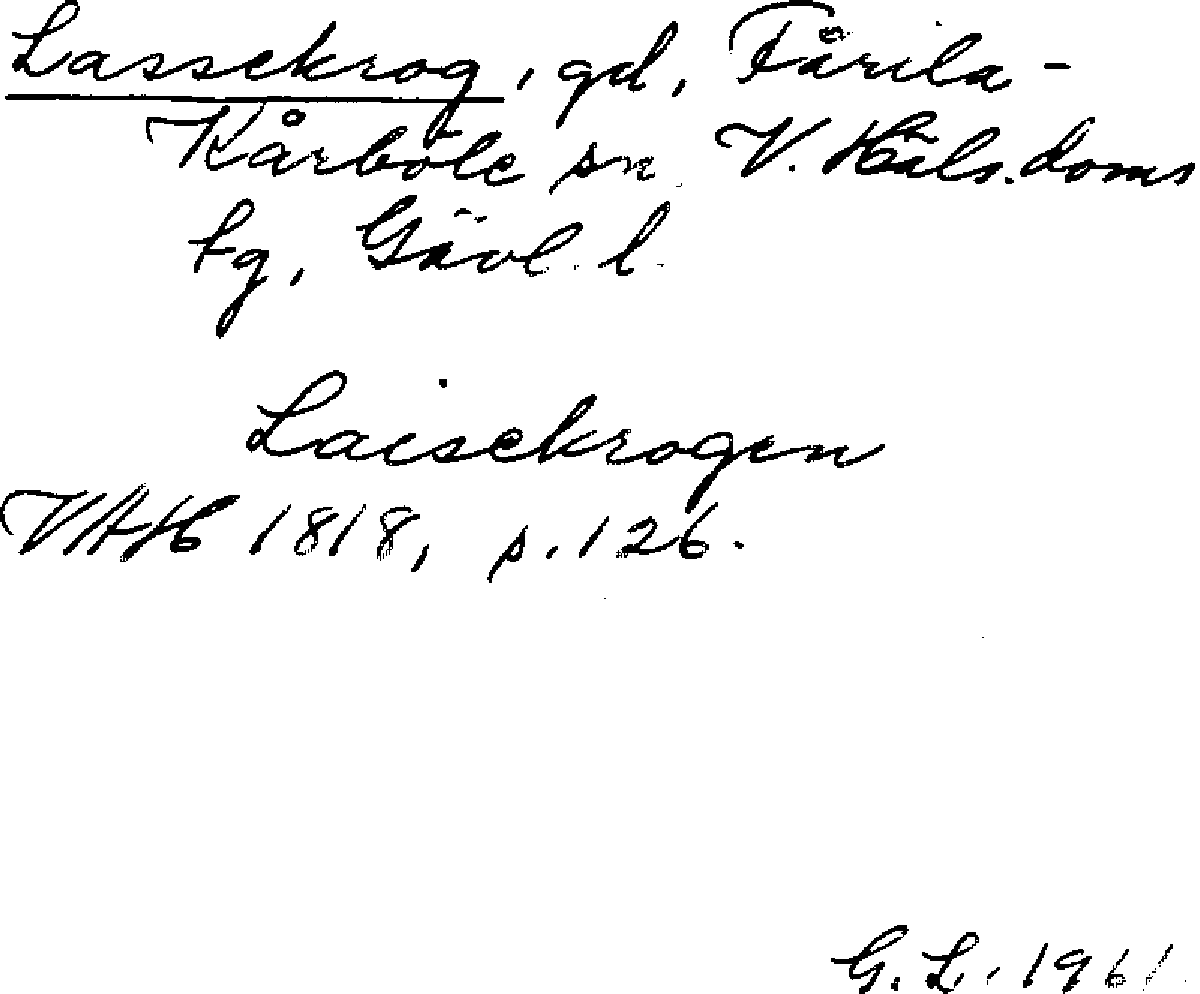 Lassekrog, gd, Färila-
Kårböle sn V. Häls. doms
tg, Gävl. l.
Laisekrogen
VAH 1818, s. 126.
G. L. 1961